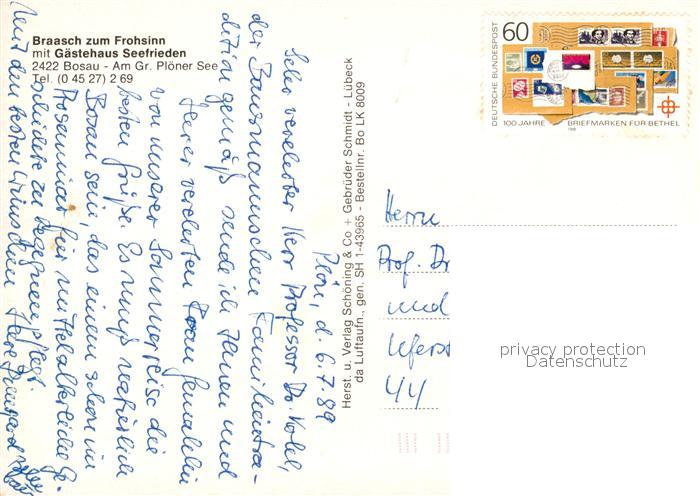 Braasch zum Frohsinn
mit Gästehaus Seefrieden
2422 Bosau - Am Gr. Plöner See
Tel. (0 45 27) 2 69
Plön, d. 6.7.89
Sehr verehrter Herr Professor Dr.
der Bausmannschen Familientra-
dition gemäß sende ich Ihnen und
Ihrer verehrten Frau Gemahlin
von unserer Sommerreise die
besten Grüße. Es muß natürlich
Bosau sein, das einem schon im
Hoseminar für mittelalterliche Ge-
schichte zu begegnen pflegt.
Mit den besten Wünschen Ihre
Herst. u. Verlag Schöning & Co + Gebrüder Schmidt - Lübeck
da Luftaufn., gen. SH 1-43965 - Bestellnr. Bo LK 8009
60
DEUTSCHE BUNDESPOST
100 JAHRE BRIEFMARKEN FÜR BETHEL
1988
Herrn
Prof. Dr
und
Uferst
44
privacy protection
Datenschutz